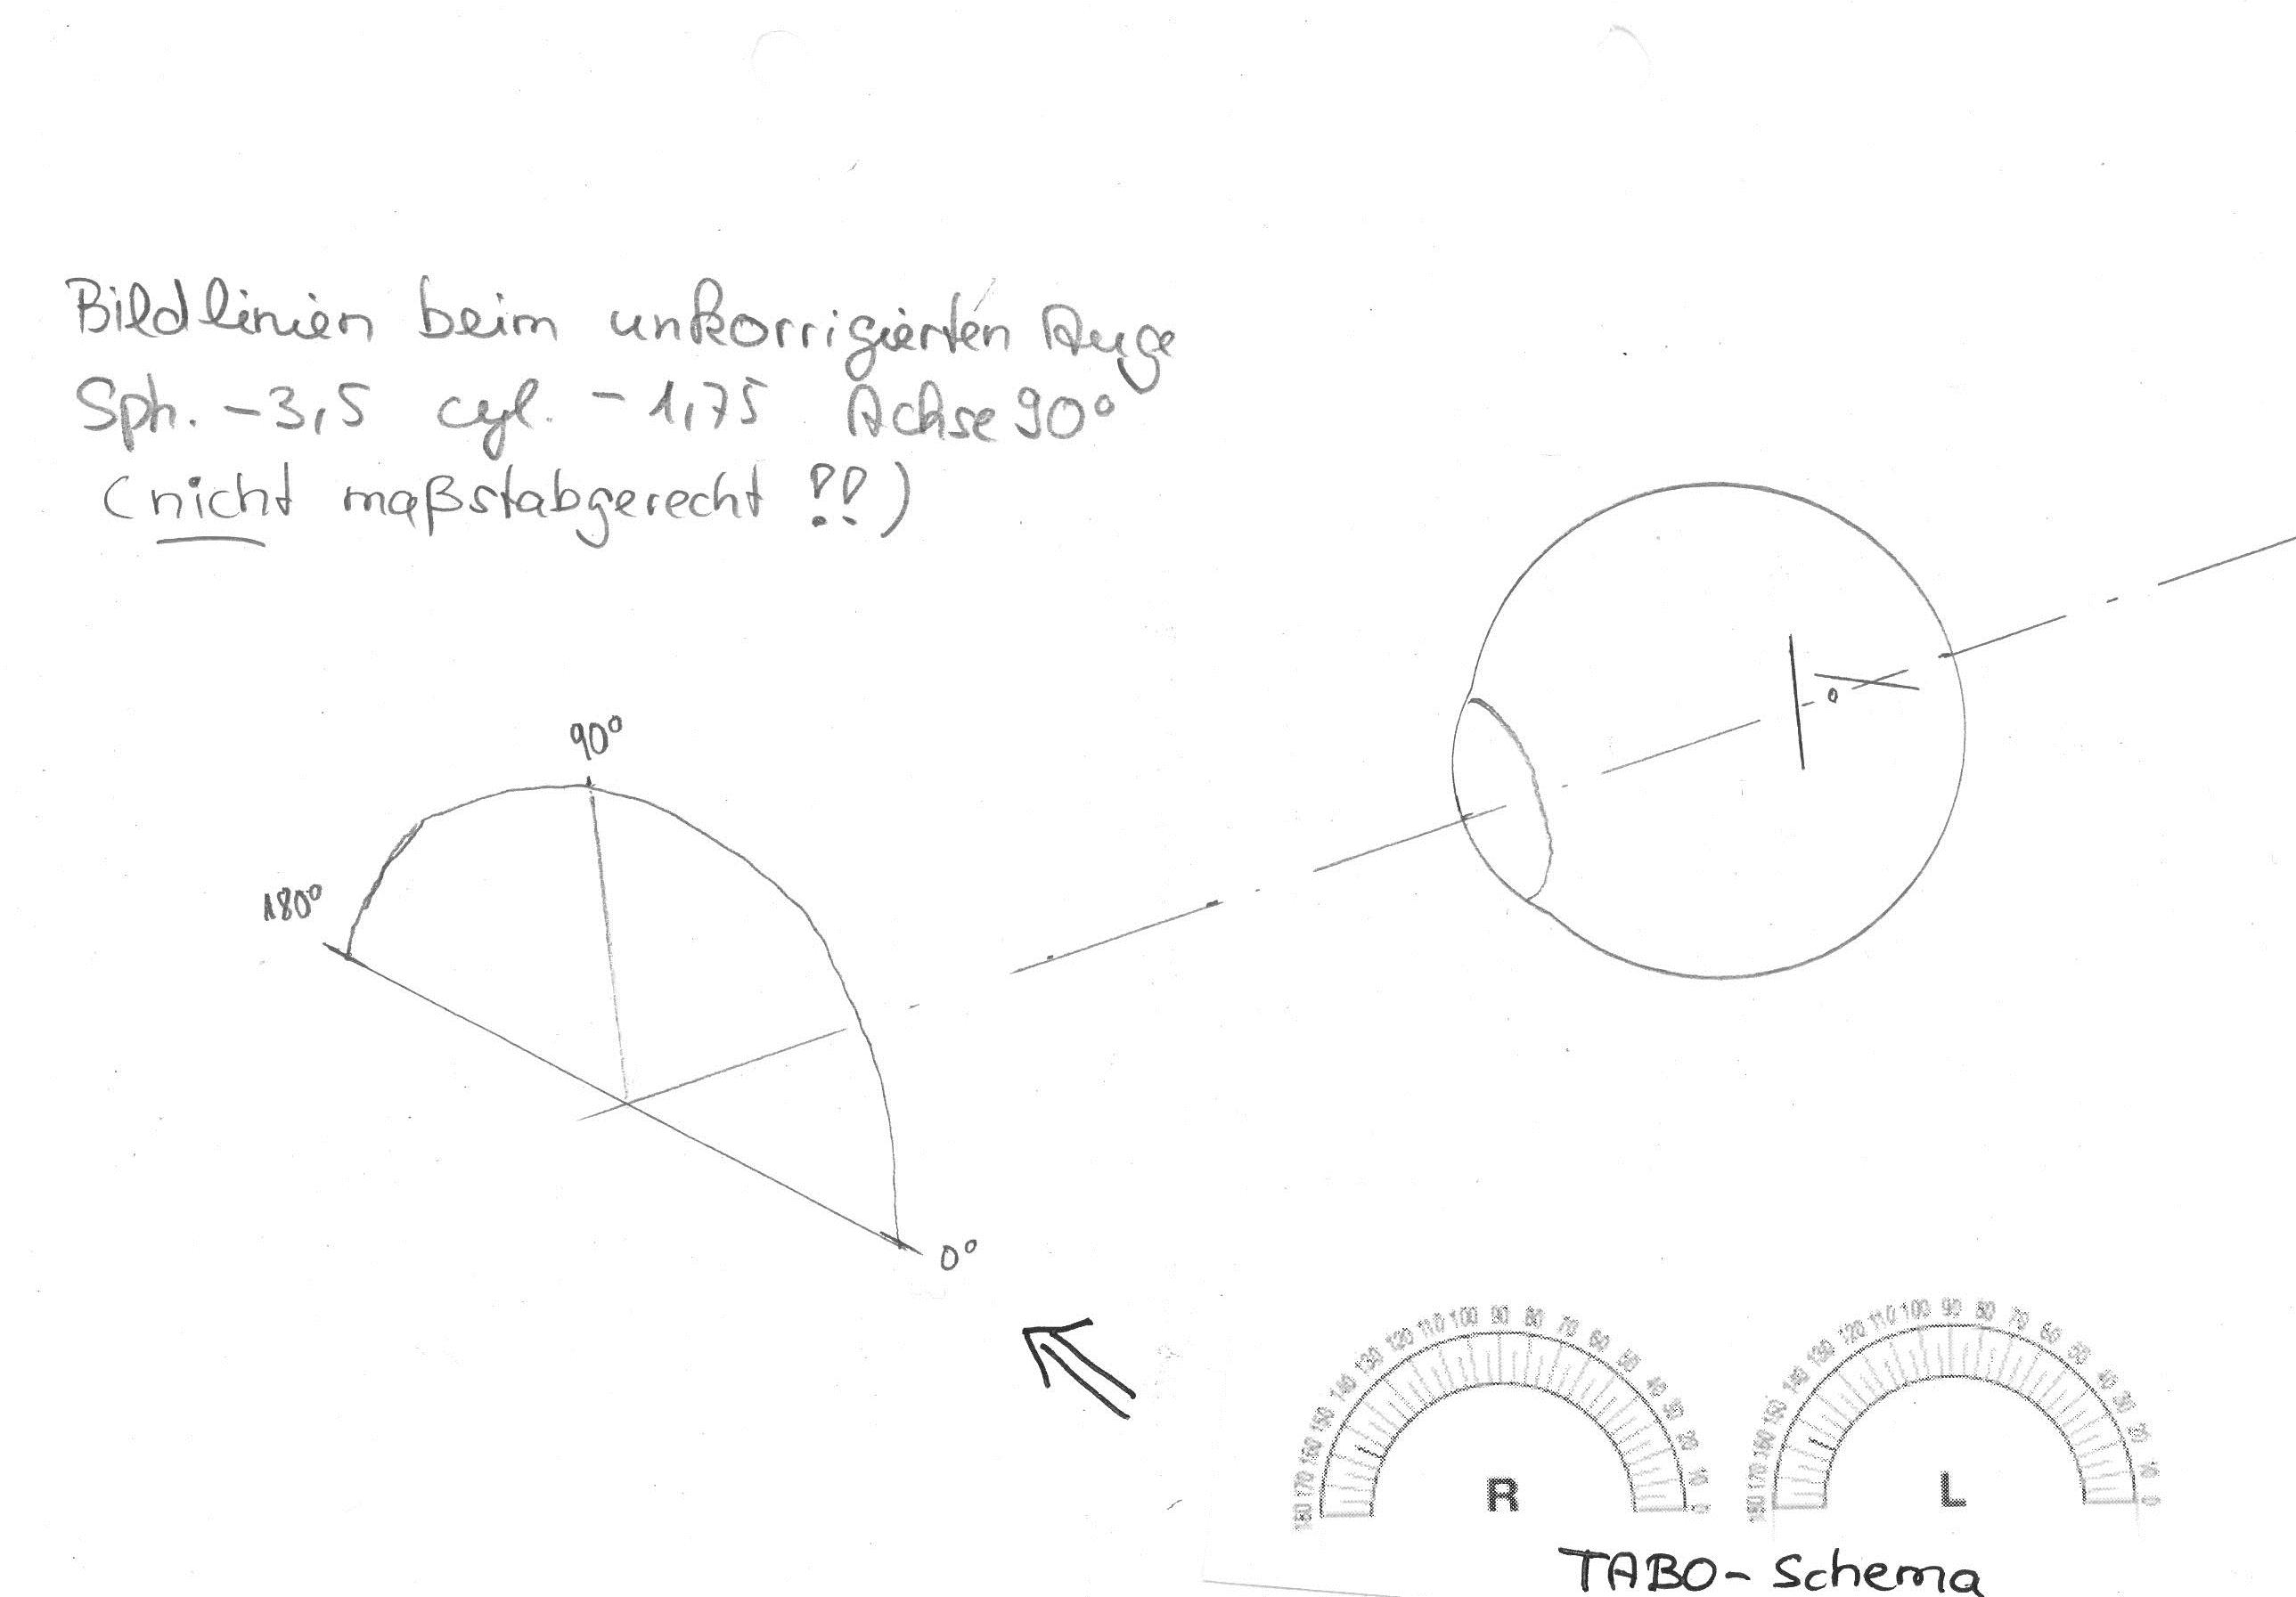 Bildlinien beim unkorrigierten Auge
Sph. -3,5 cyl. -1,75 Achse 90°
(nicht maßstabgerecht !!)
90°
180°
0°
180 170 160 150 140 130 120 110 100 90 80 70 60 50 40 30 20 10 0
R
180 170 160 150 140 130 120 110 100 90 80 70 60 50 40 30 20 10 0
L
TABO- Schema